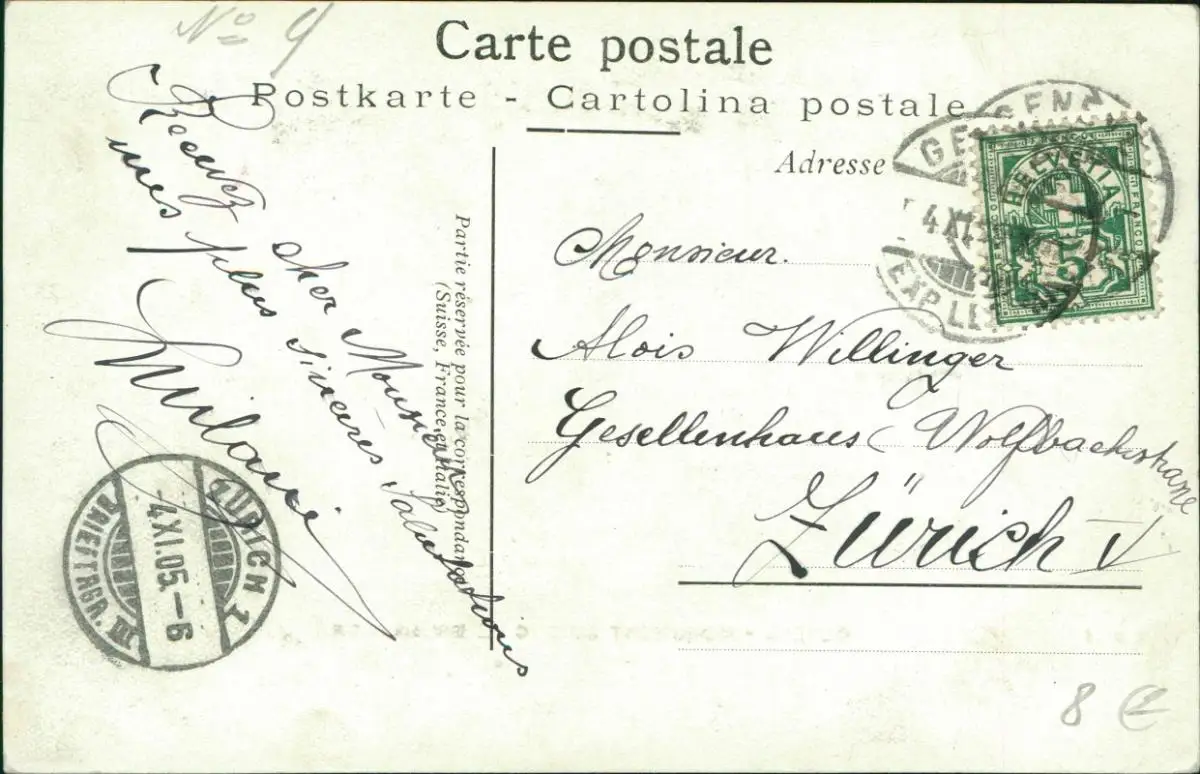 No 9
Carte postale
Postkarte - Cartolina postale
Adresse
HELVETIA
FRANCO
5
4 XI
EXP. LE
Recevez cher Monsieur
mes plus sincères Salutations
Partie réservée pour la correspondance
(Suisse, France et Italie)
Monsieur.
Alois Willinger
Gesellenhaus (Wolfbachstrasse
Zürich V
ZÜRICH 1
4.XI.05.-6
BRIEFTRGR. III
8 €